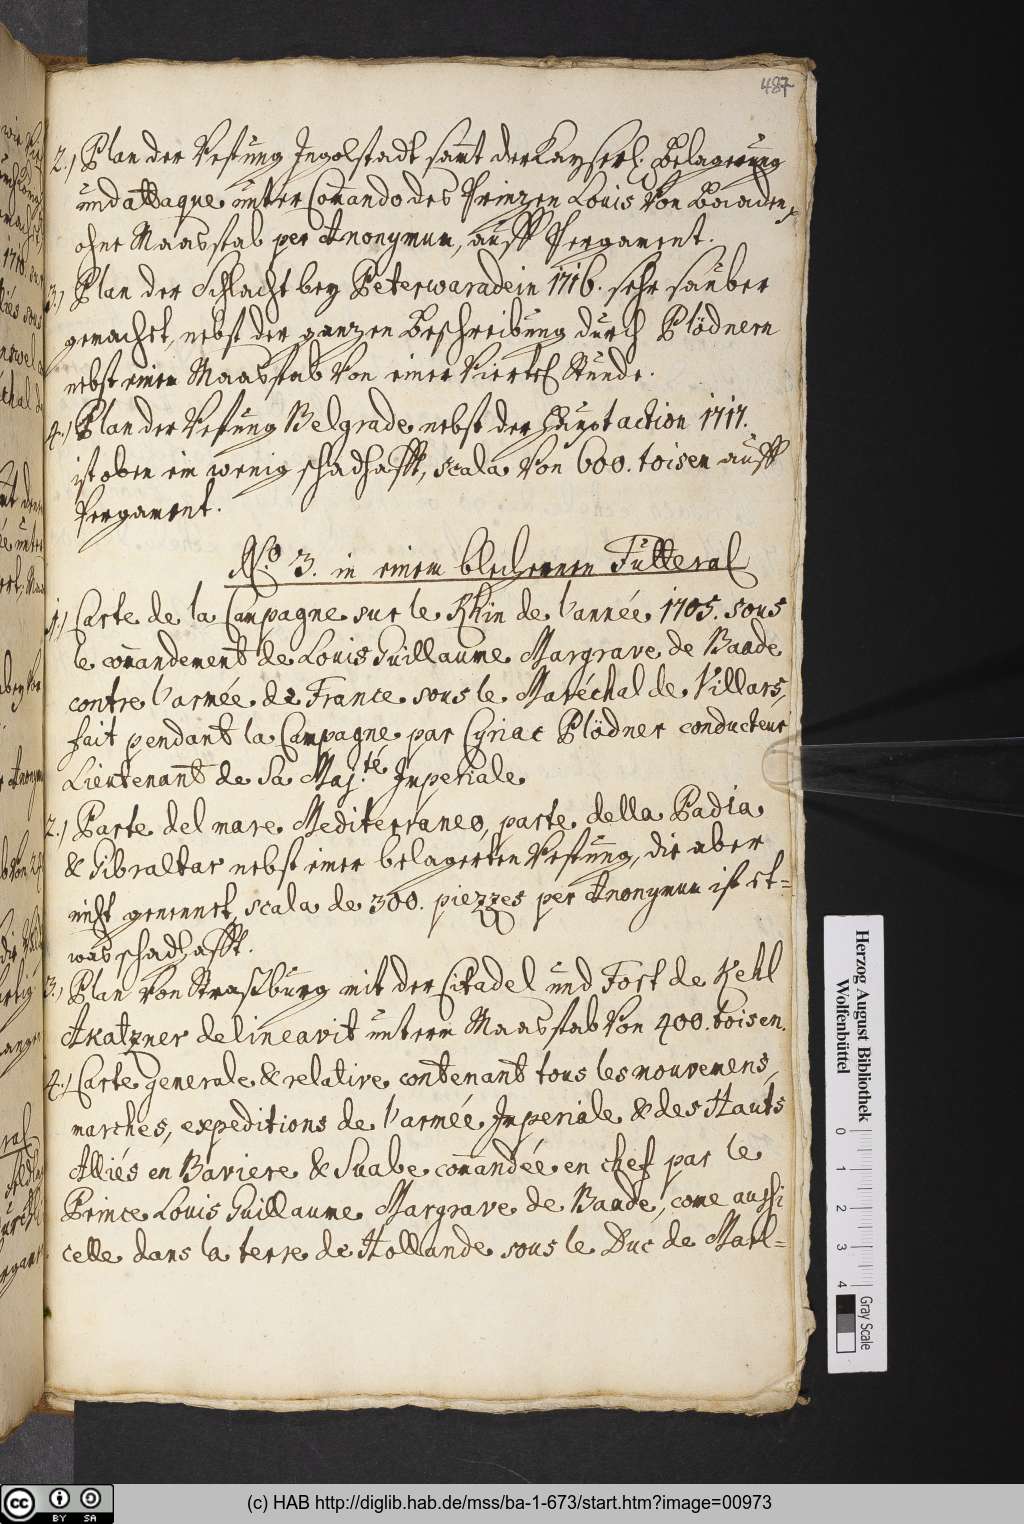 487
2.) Plan der Vestung Ingolstadt samt der Kayserl. Belagerung
und attaque unter Com̄ando des Prinzen Louis von Baaden
ohne Maasstab per Anonymum, auff Pergament.
3.) Plan der Schlacht bey Peterwaradein 1716. sehr sauber
gemacht, nebst der ganzen Beschreibung durch Plödnern
nebst einem Maasstab von einer Viertel Stunde.
4.) Plan der Vestung Belgrade nebst der Hauptaction 1717.
ist oben ein wenig schadhafft, scala von 600. toisen auff
Pergament.
No. 3. in einem blechernen Futteral
1.) Carte de la Campagne sur le Rhin de l'année 1705. sous
le com̄andement de Louis Guillaume Margrave de Baade
contre l'armée de France sous le Maréchal de Villars,
fait pendant la Campagne par Cyriac Plödner conducteur
Lieutenant de Sa Maj.té Imperiale
2.) Parte del mare Mediterraneo, parte della Badia
& Gibraltar nebst einer belagerten Vestung, die aber
nicht genennet, scala de 300. piezzes per Anonymum ist et=
was schadhafft.
3.) Plan von Straszburg mit der Citadel und Fort de Kehl
AKatzner delineavit unterm Maasstab von 400. toisen.
4.) Carte generale & relative contenant tous les mouvemens,
marches, expeditions de l'armée Imperiale & des Hauts
Alliés en Baviere & Suabe com̄andée en chef par le
Prince Louis Guillaume Margrave de Baade, come aussi
celle dans la terre de Hollande sous le Duc de Marl=
Herzog August Bibliothek
Wolfenbüttel
0 1 2 3 4
Gray Scale
(c) HAB http://diglib.hab.de/mss/ba-1-673/start.htm?image=00973
CC BY SA